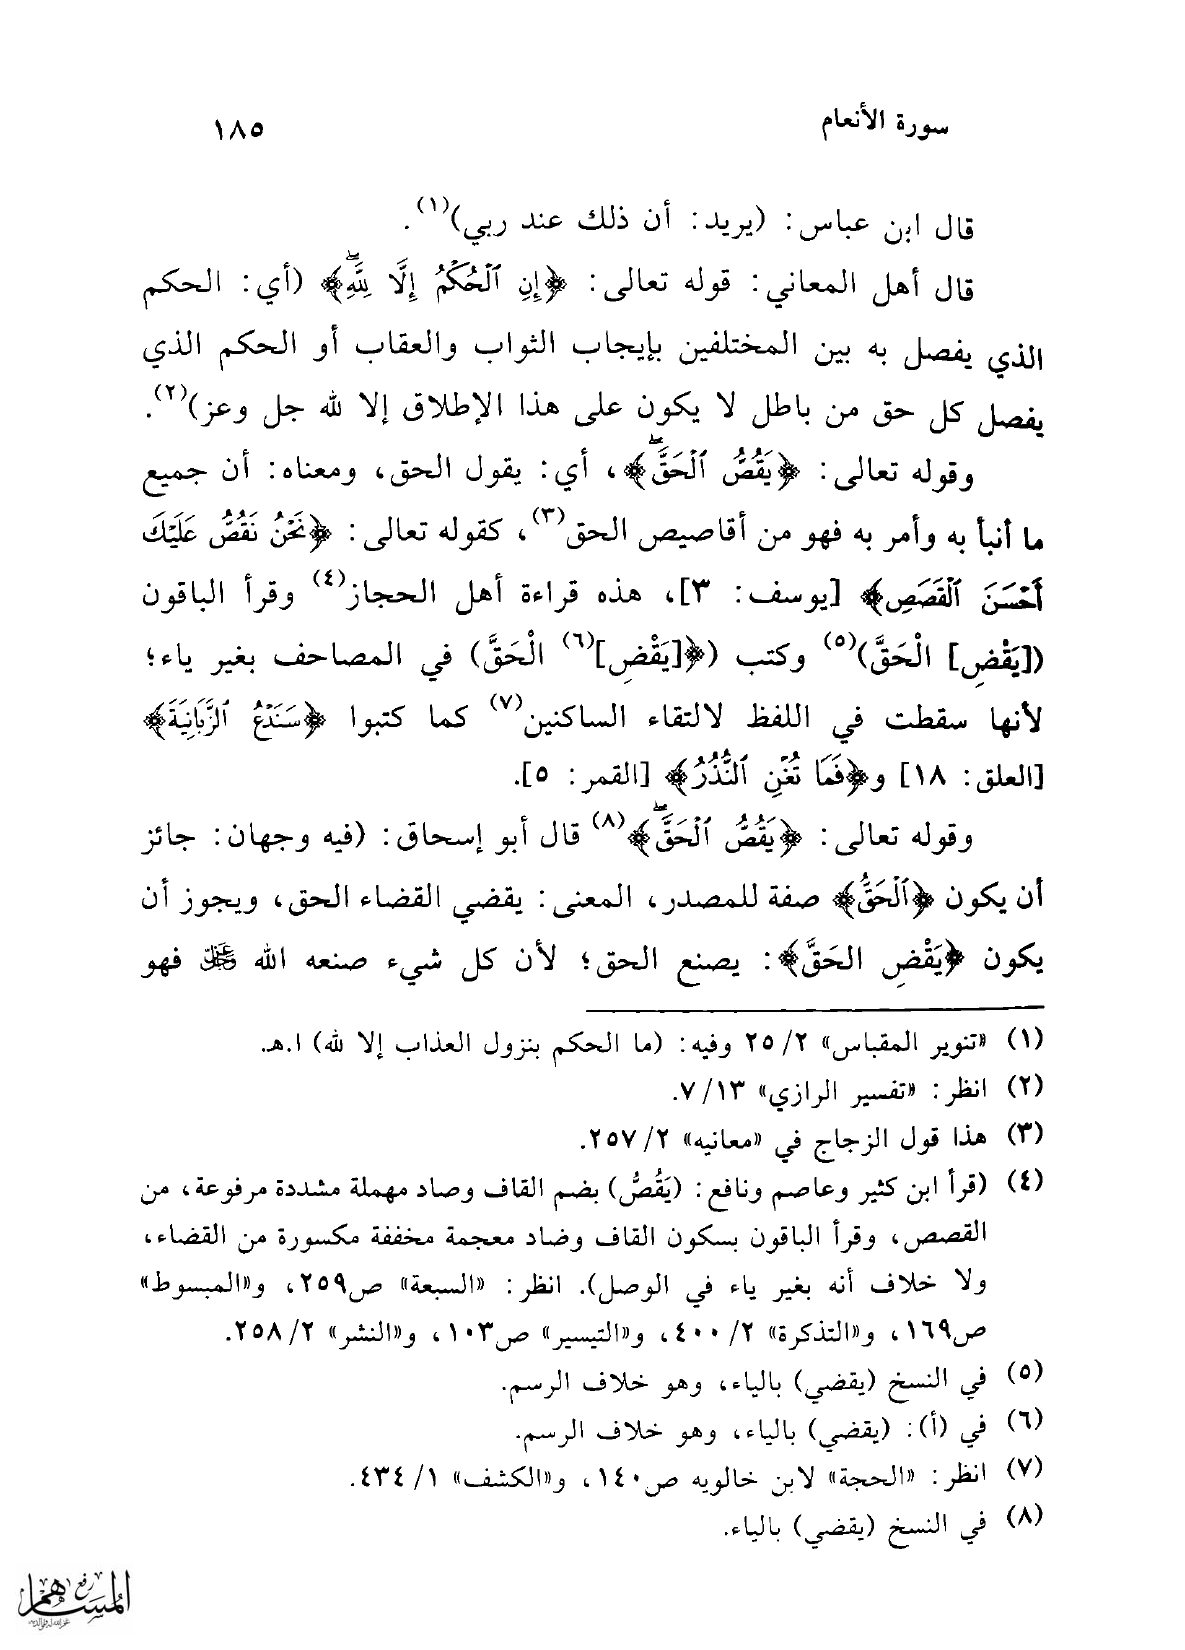 سورة الأنعام ١٨٥
قال ابن عباس: (يريد: أن ذلك عند ربي)(١).
قال أهل المعاني: قوله تعالى: ﴿إِنِ ٱلْحُكْمُ إِلَّا لِلَّهِۖ﴾ (أي: الحكم
الذي يفصل به بين المختلفين بإيجاب الثواب والعقاب أو الحكم الذي
يفصل كل حق من باطل لا يكون على هذا الإطلاق إلا لله جل وعز)(٢).
وقوله تعالى: ﴿يَقُصُّ ٱلْحَقَّۖ﴾، أي: يقول الحق، ومعناه: أن جميع
ما أنبأ به وأمر به فهو من أقاصيص الحق(٣)، كقوله تعالى: ﴿نَحْنُ نَقُصُّ عَلَيْكَ
أَحْسَنَ ٱلْقَصَصِ﴾ [يوسف: ٣]، هذه قراءة أهل الحجاز(٤) وقرأ الباقون
([يَقْضِ] الْحَقَّ)(٥) وكتب (﴿[يَقْضِ](٦) الْحَقَّ) في المصاحف بغير ياء؛
لأنها سقطت في اللفظ لالتقاء الساكنين(٧) كما كتبوا ﴿سَنَدْعُ ٱلزَّبَانِيَةَ﴾
[العلق: ١٨] و﴿فَمَا تُغْنِ ٱلنُّذُرُ﴾ [القمر: ٥].
وقوله تعالى: ﴿يَقُصُّ ٱلْحَقَّۖ﴾(٨) قال أبو إسحاق: (فيه وجهان: جائز
أن يكون ﴿ٱلْحَقُّ﴾ صفة للمصدر، المعنى: يقضي القضاء الحق، ويجوز أن
يكون ﴿يَقْضِ الحَقَّ﴾: يصنع الحق؛ لأن كل شيء صنعه الله عز وجل فهو
(١) «تنوير المقباس» ٢/ ٢٥ وفيه: (ما الحكم بنزول العذاب إلا لله) ا.هـ.
(٢) انظر: «تفسير الرازي» ١٣/ ٧.
(٣) هذا قول الزجاج في «معانيه» ٢/ ٢٥٧.
(٤) (قرأ ابن كثير وعاصم ونافع: (يَقُصُّ) بضم القاف وصاد مهملة مشددة مرفوعة، من
القصص، وقرأ الباقون بسكون القاف وضاد معجمة مخففة مكسورة من القضاء،
ولا خلاف أنه بغير ياء في الوصل). انظر: «السبعة» ص٢٥٩، و«المبسوط»
ص١٦٩، و«التذكرة» ٢/ ٤٠٠، و«التيسير» ص١٠٣، و«النشر» ٢/ ٢٥٨.
(٥) في النسخ (يقضي) بالياء، وهو خلاف الرسم.
(٦) في (أ): (يقضي) بالياء، وهو خلاف الرسم.
(٧) انظر: «الحجة» لابن خالويه ص١٤٠، و«الكشف» ١/ ٤٣٤.
(٨) في النسخ (يقضي) بالياء.
رفع
المساهم